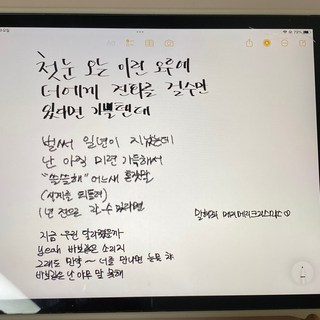 첫눈 오는 이런 오후에
너에게 전화를 걸 수만
있다면 기쁠텐데
벌써 일년이 지났는데
난 아직 미련 가득해서
"쓸쓸해" 어느새 혼잣말
(시계를 되돌려)
1년 전으로 갈 수 있다면
지금 우린 달라졌을까
yeah 바보같은 소리지
그래도 만약 ~ 너를 만나면 눈물 차
바보같은 난 아무 말 못해
말해줘 메리메리크리스마스